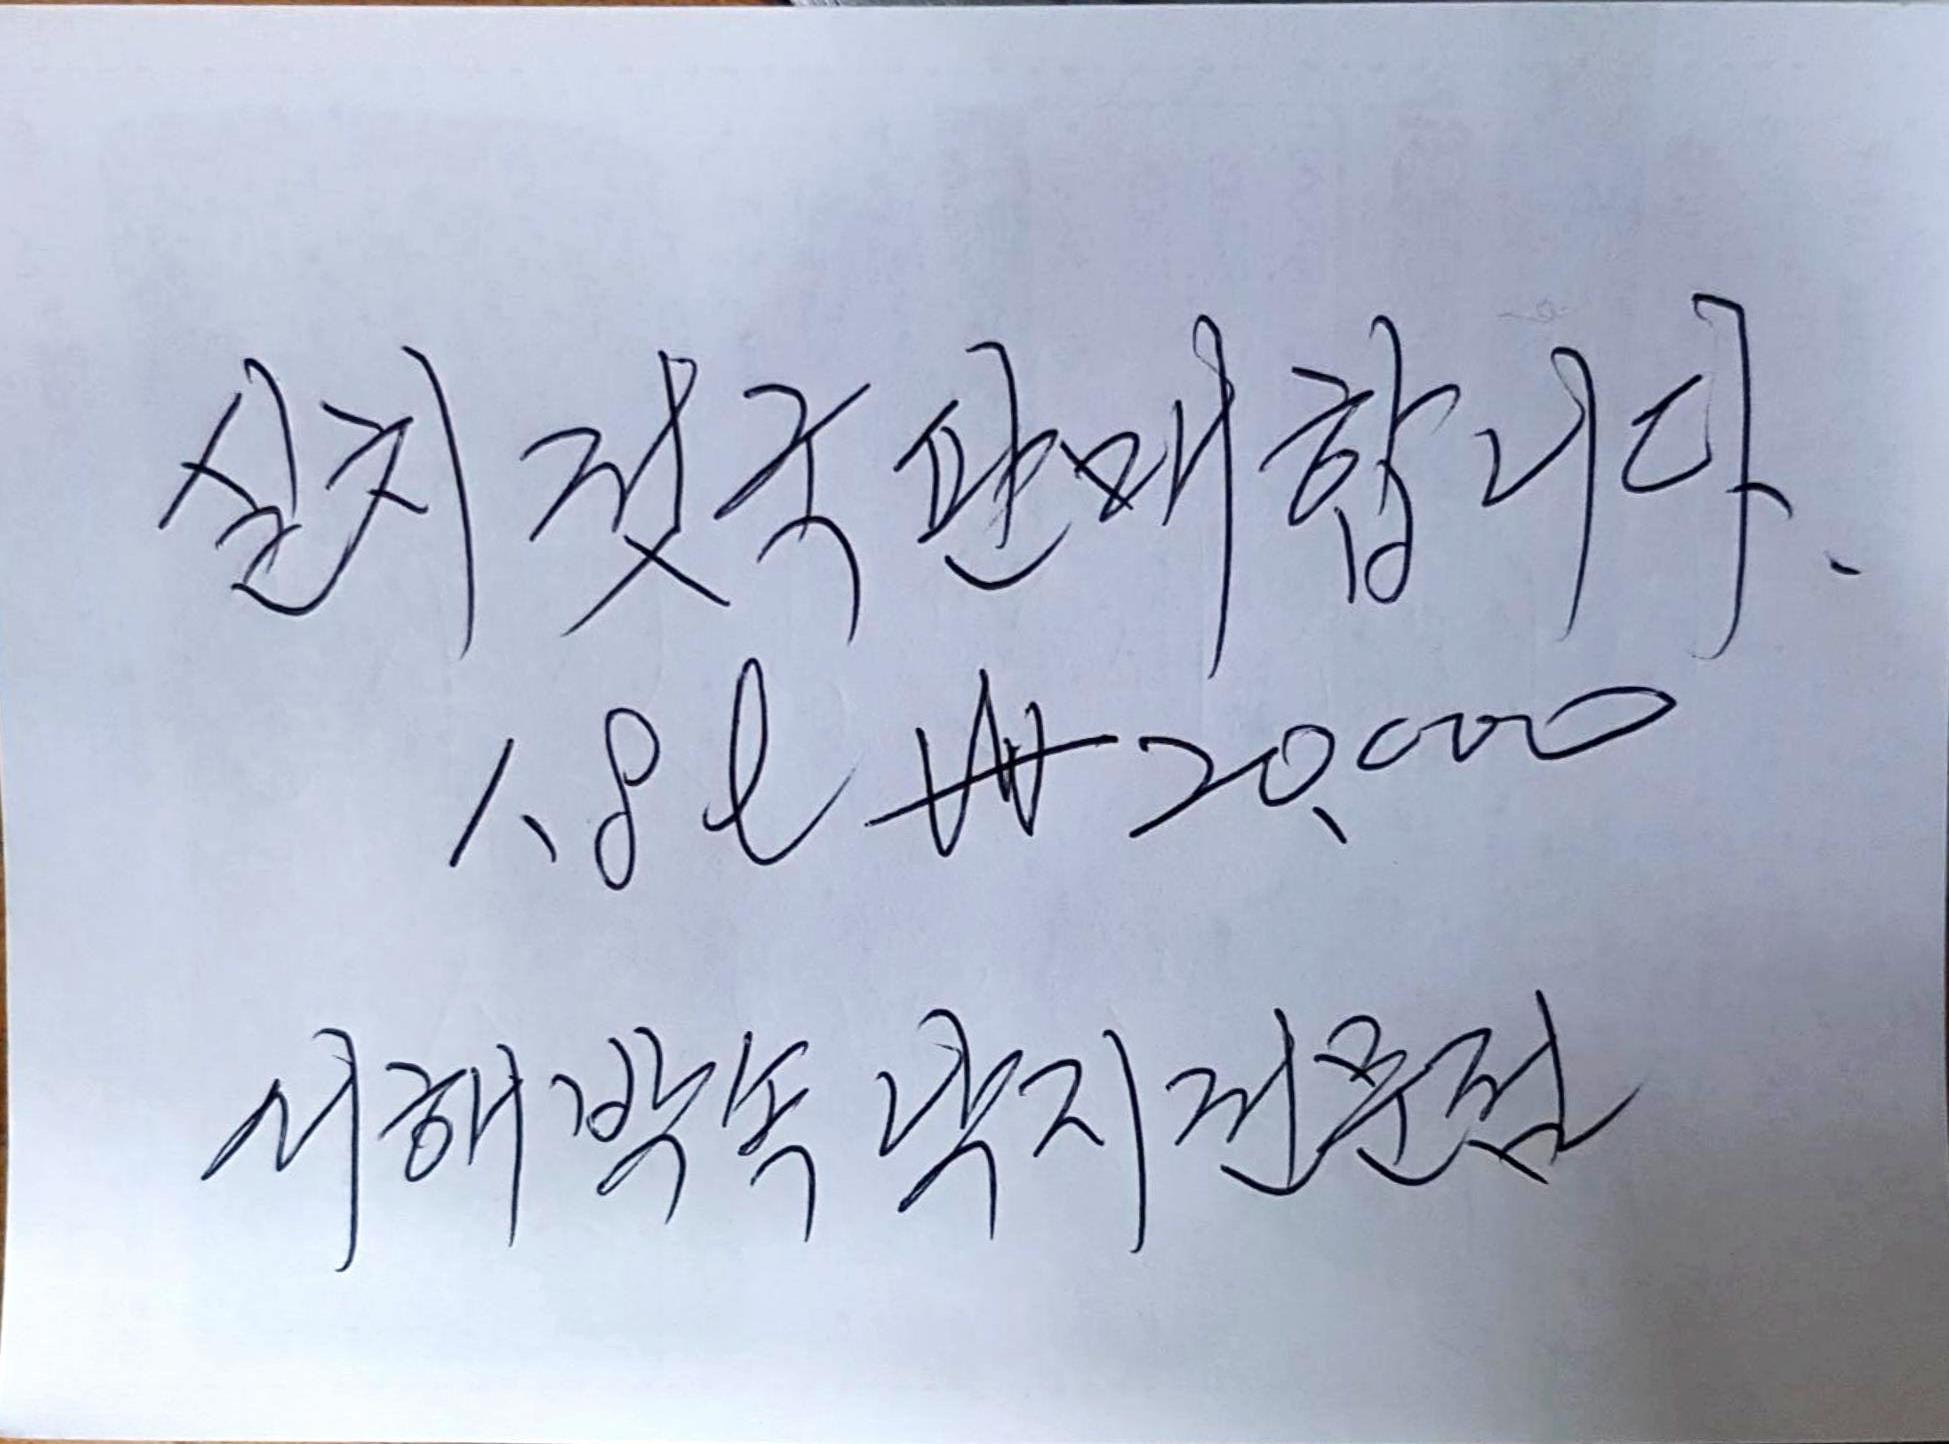 실치 젓국 판매합니다.
1.8ℓ ₩20,000
서해 박속 낙지 전문점